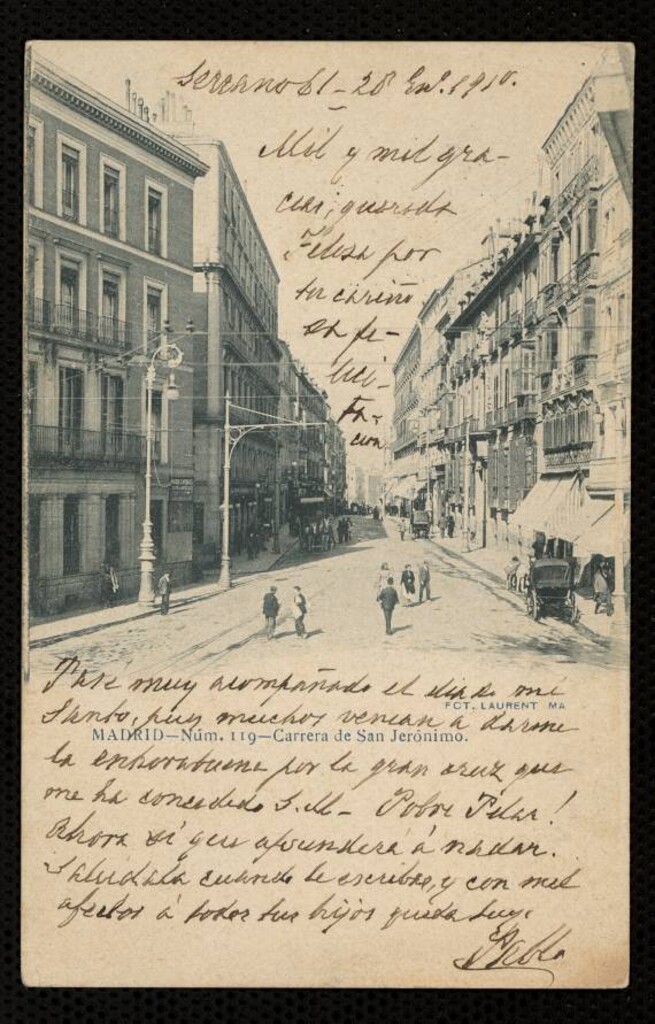 Serrano 61 - 28 En.º 1910.
Mil y mil gra-
cias, querida
Felisa por
tu cariño
sa fe-
lici-
ta-
cion
Pasé muy acompañado el dia de mi
Santo, pues muchos venian a darme
FOT. LAURENT MA
MADRID—Núm. 119—Carrera de San Jerónimo.
la enhorabuena por la gran cruz que
me ha concedido S.M- Pobre Pilar!
Ahora si que aprenderá á nadar.
Saludala cuando le escribas, y con mil
afectos á todos tus hijos queda tuyo
Pablo